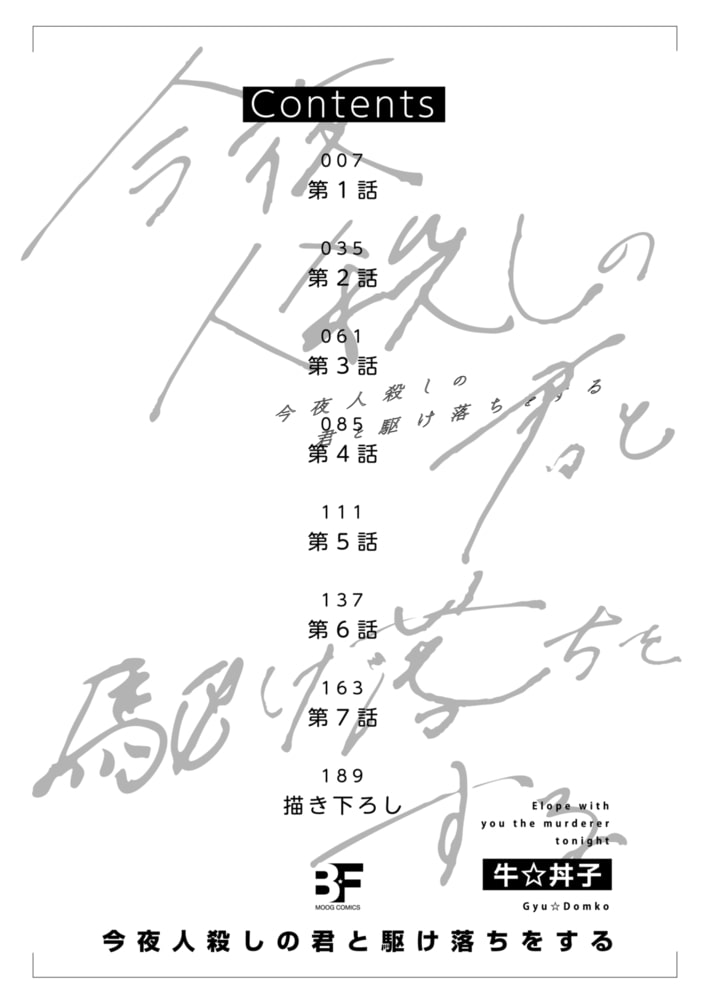 Contents
007
第1話
035
第2話
061
第3話
085
第4話
111
第5話
137
第6話
163
第7話
189
描き下ろし
今夜
人殺しの
君と
駆け落ちを
する
今夜人殺しの
君と駆け落ちをする
Elope with
you the murderer
tonight
牛☆丼子
Gyu☆Domko
BF
MOOG COMICS
今夜人殺しの君と駆け落ちをする